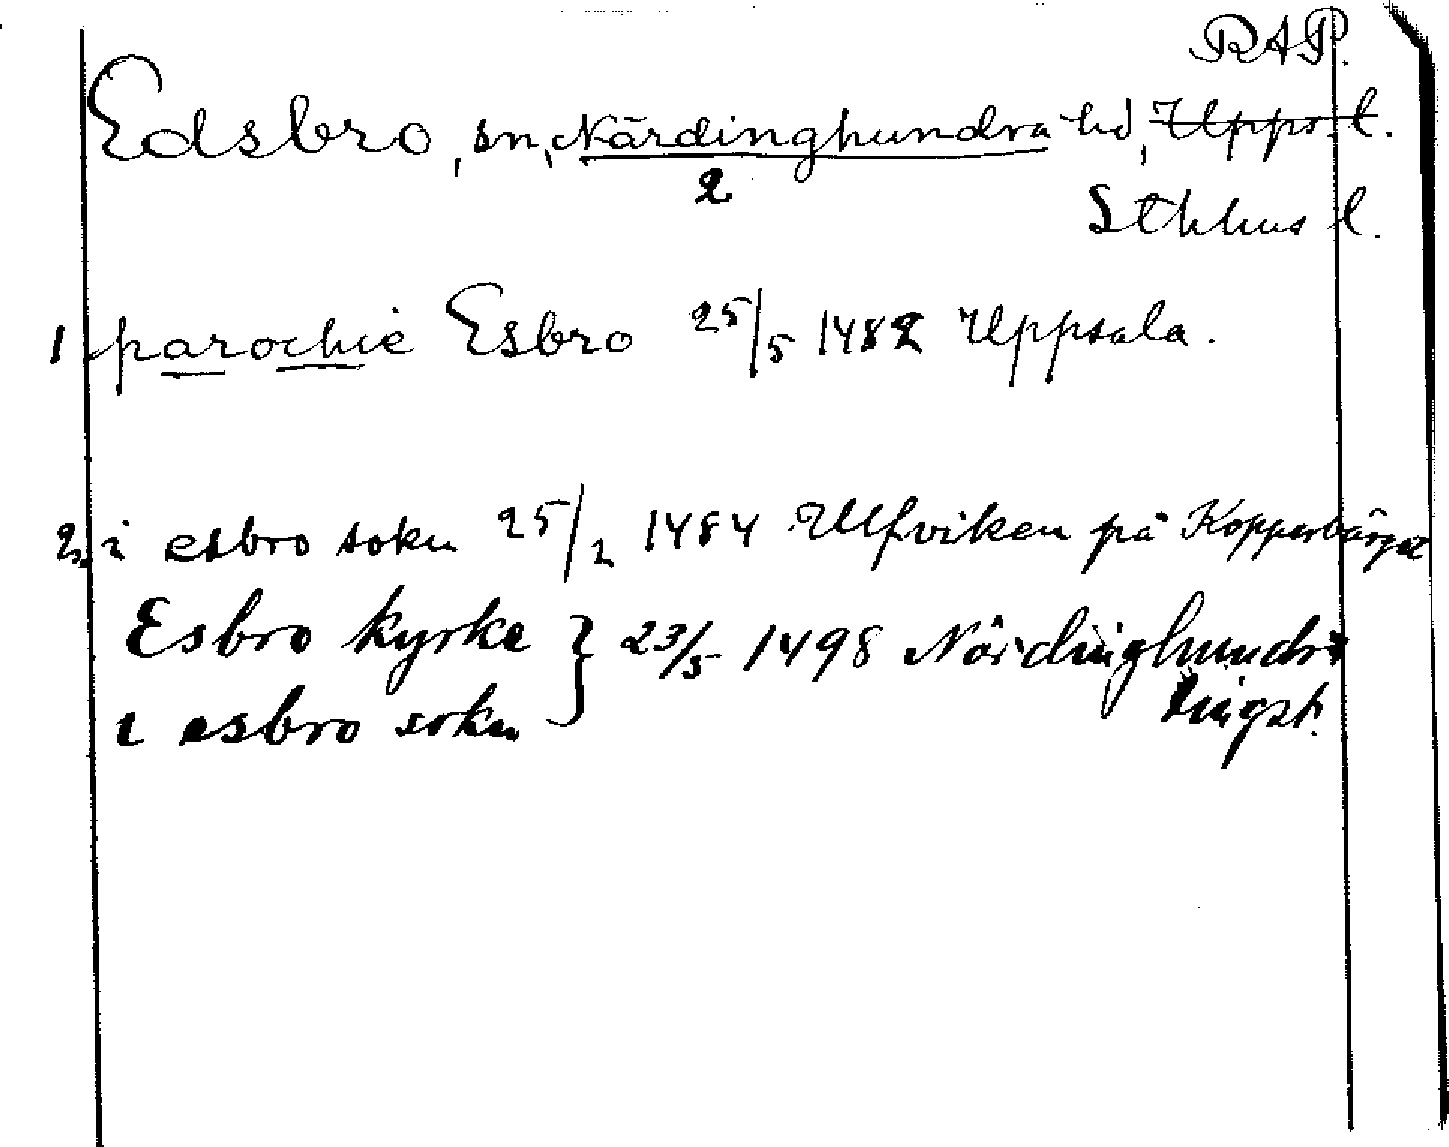 RAP.
Edsbro, sn, Närdinghundra hd, Upps. l.
2
Sthlms l.
1 parochie Esbro 25/5 1482 Uppsala.
2. i esbro sokn 25/2 1484 Ulfviken på Kopparbärget
Esbro kyrke } 23/5 1498 Närdinghundra
i esbro sokn tingst.